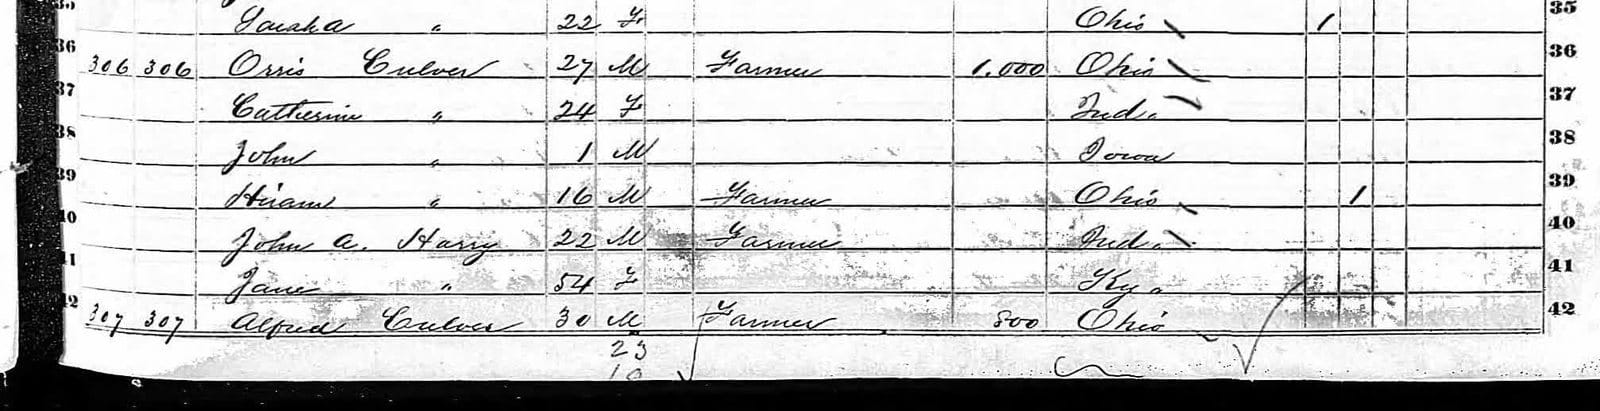 35 Sarah A " 22 F Ohio 1 35
36 306 306 Orris Culver 27 M Farmer 1.000 Ohio 36
37 Catherine " 24 F Ind. 37
38 John " 1 M Iowa 38
39 Hiram " 16 M Farmer Ohio 1 39
40 John A. Harry 22 M Farmer Ind. 40
41 Jane " 54 F Ky. 41
42 307 307 Alfred Culver 30 M Farmer 800 Ohio 42
23